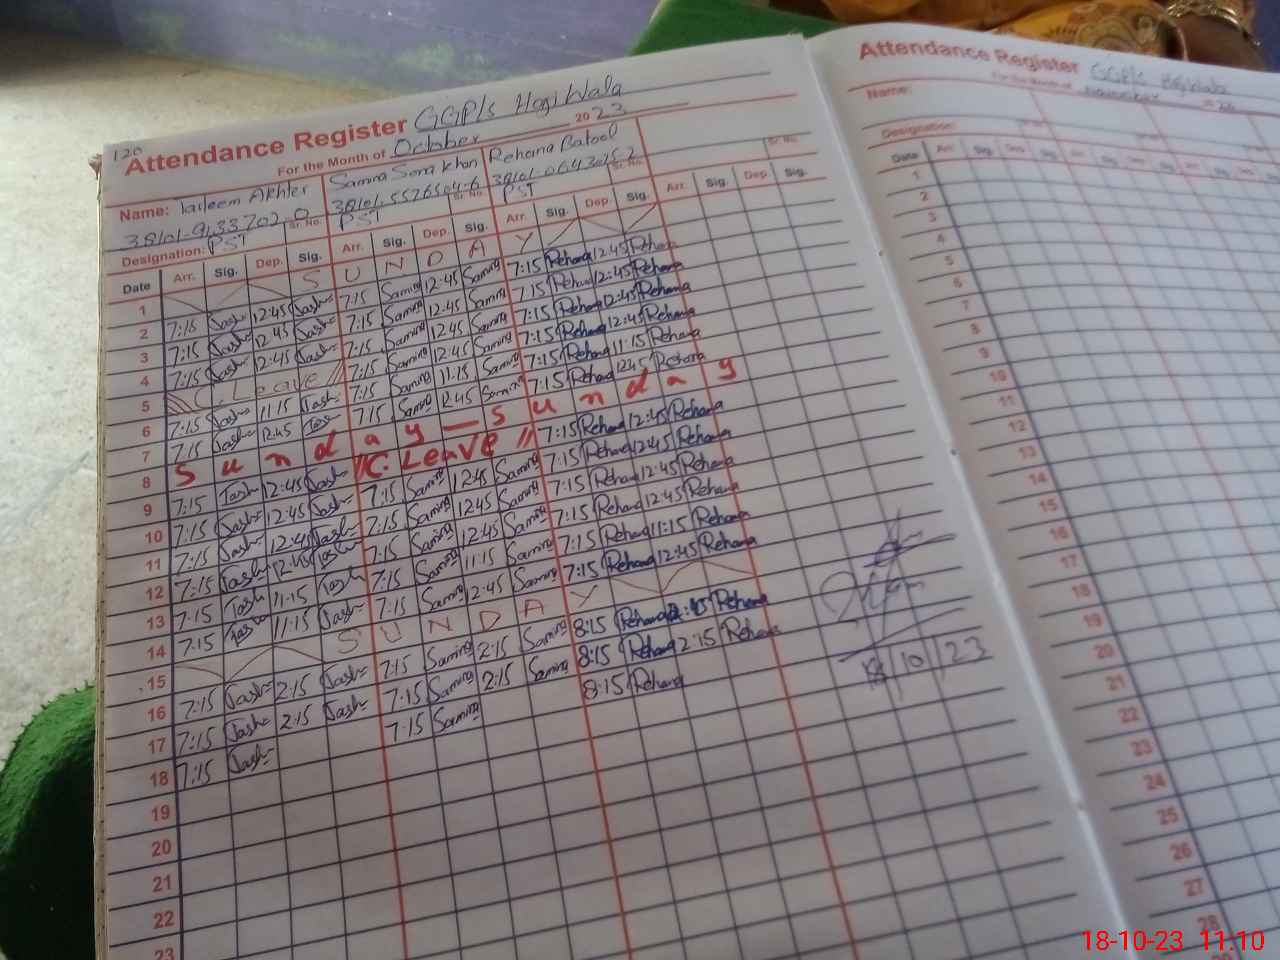 120
Attendance Register GGPLS Hajiwala
For the Month of October 2023
Name: Tasleem Akhter Samra Sona Khan Rehana Batool
38101-9133702-0 Sr. No. 38101-5576504-6 Sr. No. 38101-0643025-2 Sr. No. Sr. No.
Designation: PST PST PST
Date Arr. Sig. Dep. Sig. Arr. Sig. Dep. Sig. Arr. Sig. Dep. Sig. Arr. Sig. Dep. Sig.
1 S U N D A Y
2 7:15 Tash 12:45 Tash 7:15 Samra 12:45 Samra 7:15 Rehana 12:45 Rehana
3 7:15 Tash 12:45 Tash 7:15 Samra 12:45 Samra 7:15 Rehana 12:45 Rehana
4 7:15 Tash 12:45 Tash 7:15 Samra 12:45 Samra 7:15 Rehana 12:45 Rehana
5 // C. Leave // 7:15 Samra 12:45 Samra 7:15 Rehana 12:45 Rehana
6 7:15 Tash 11:15 Tash 7:15 Samra 11:15 Samra 7:15 Rehana 11:15 Rehana
7 7:15 Tash 12:45 Tash 7:15 Samra 12:45 Samra 7:15 Rehana 12:45 Rehana
8 S u n d a y — S u n d a y
9 7:15 Tash 12:45 Tash // C. Leave // 7:15 Rehana 12:45 Rehana
10 7:15 Tash 12:45 Tash 7:15 Samra 12:45 Samra 7:15 Rehana 12:45 Rehana
11 7:15 Tash 12:45 Tash 7:15 Samra 12:45 Samra 7:15 Rehana 12:45 Rehana
12 7:15 Tash 12:45 Tash 7:15 Samra 12:45 Samra 7:15 Rehana 12:45 Rehana
13 7:15 Tash 11:15 Tash 7:15 Samra 11:15 Samra 7:15 Rehana 11:15 Rehana
14 7:15 Tash 11:15 Tash 7:15 Samra 12:45 Samra 7:15 Rehana 12:45 Rehana
15 S U N D A Y
16 7:15 Tash 2:15 Tash 7:15 Samra 2:15 Samra 8:15 Rehana 2:45 Rehana
17 7:15 Tash 2:15 Tash 7:15 Samra 2:15 Samra 8:15 Rehana 2:15 Rehana
18 7:15 Tash 7:15 Samra 8:15 Rehana
18/10/23
19
20
21
22
23
Attendance Register GGPLS Hajiwala
For the Month of November 20
Name:
Designation:
Date Arr. Sig. Dep.
1
2
3
4
5
6
7
8
9
10
11
12
13
14
15
16
17
18
19
20
21
22
23
24
25
26
27
28
18-10-23 11:10